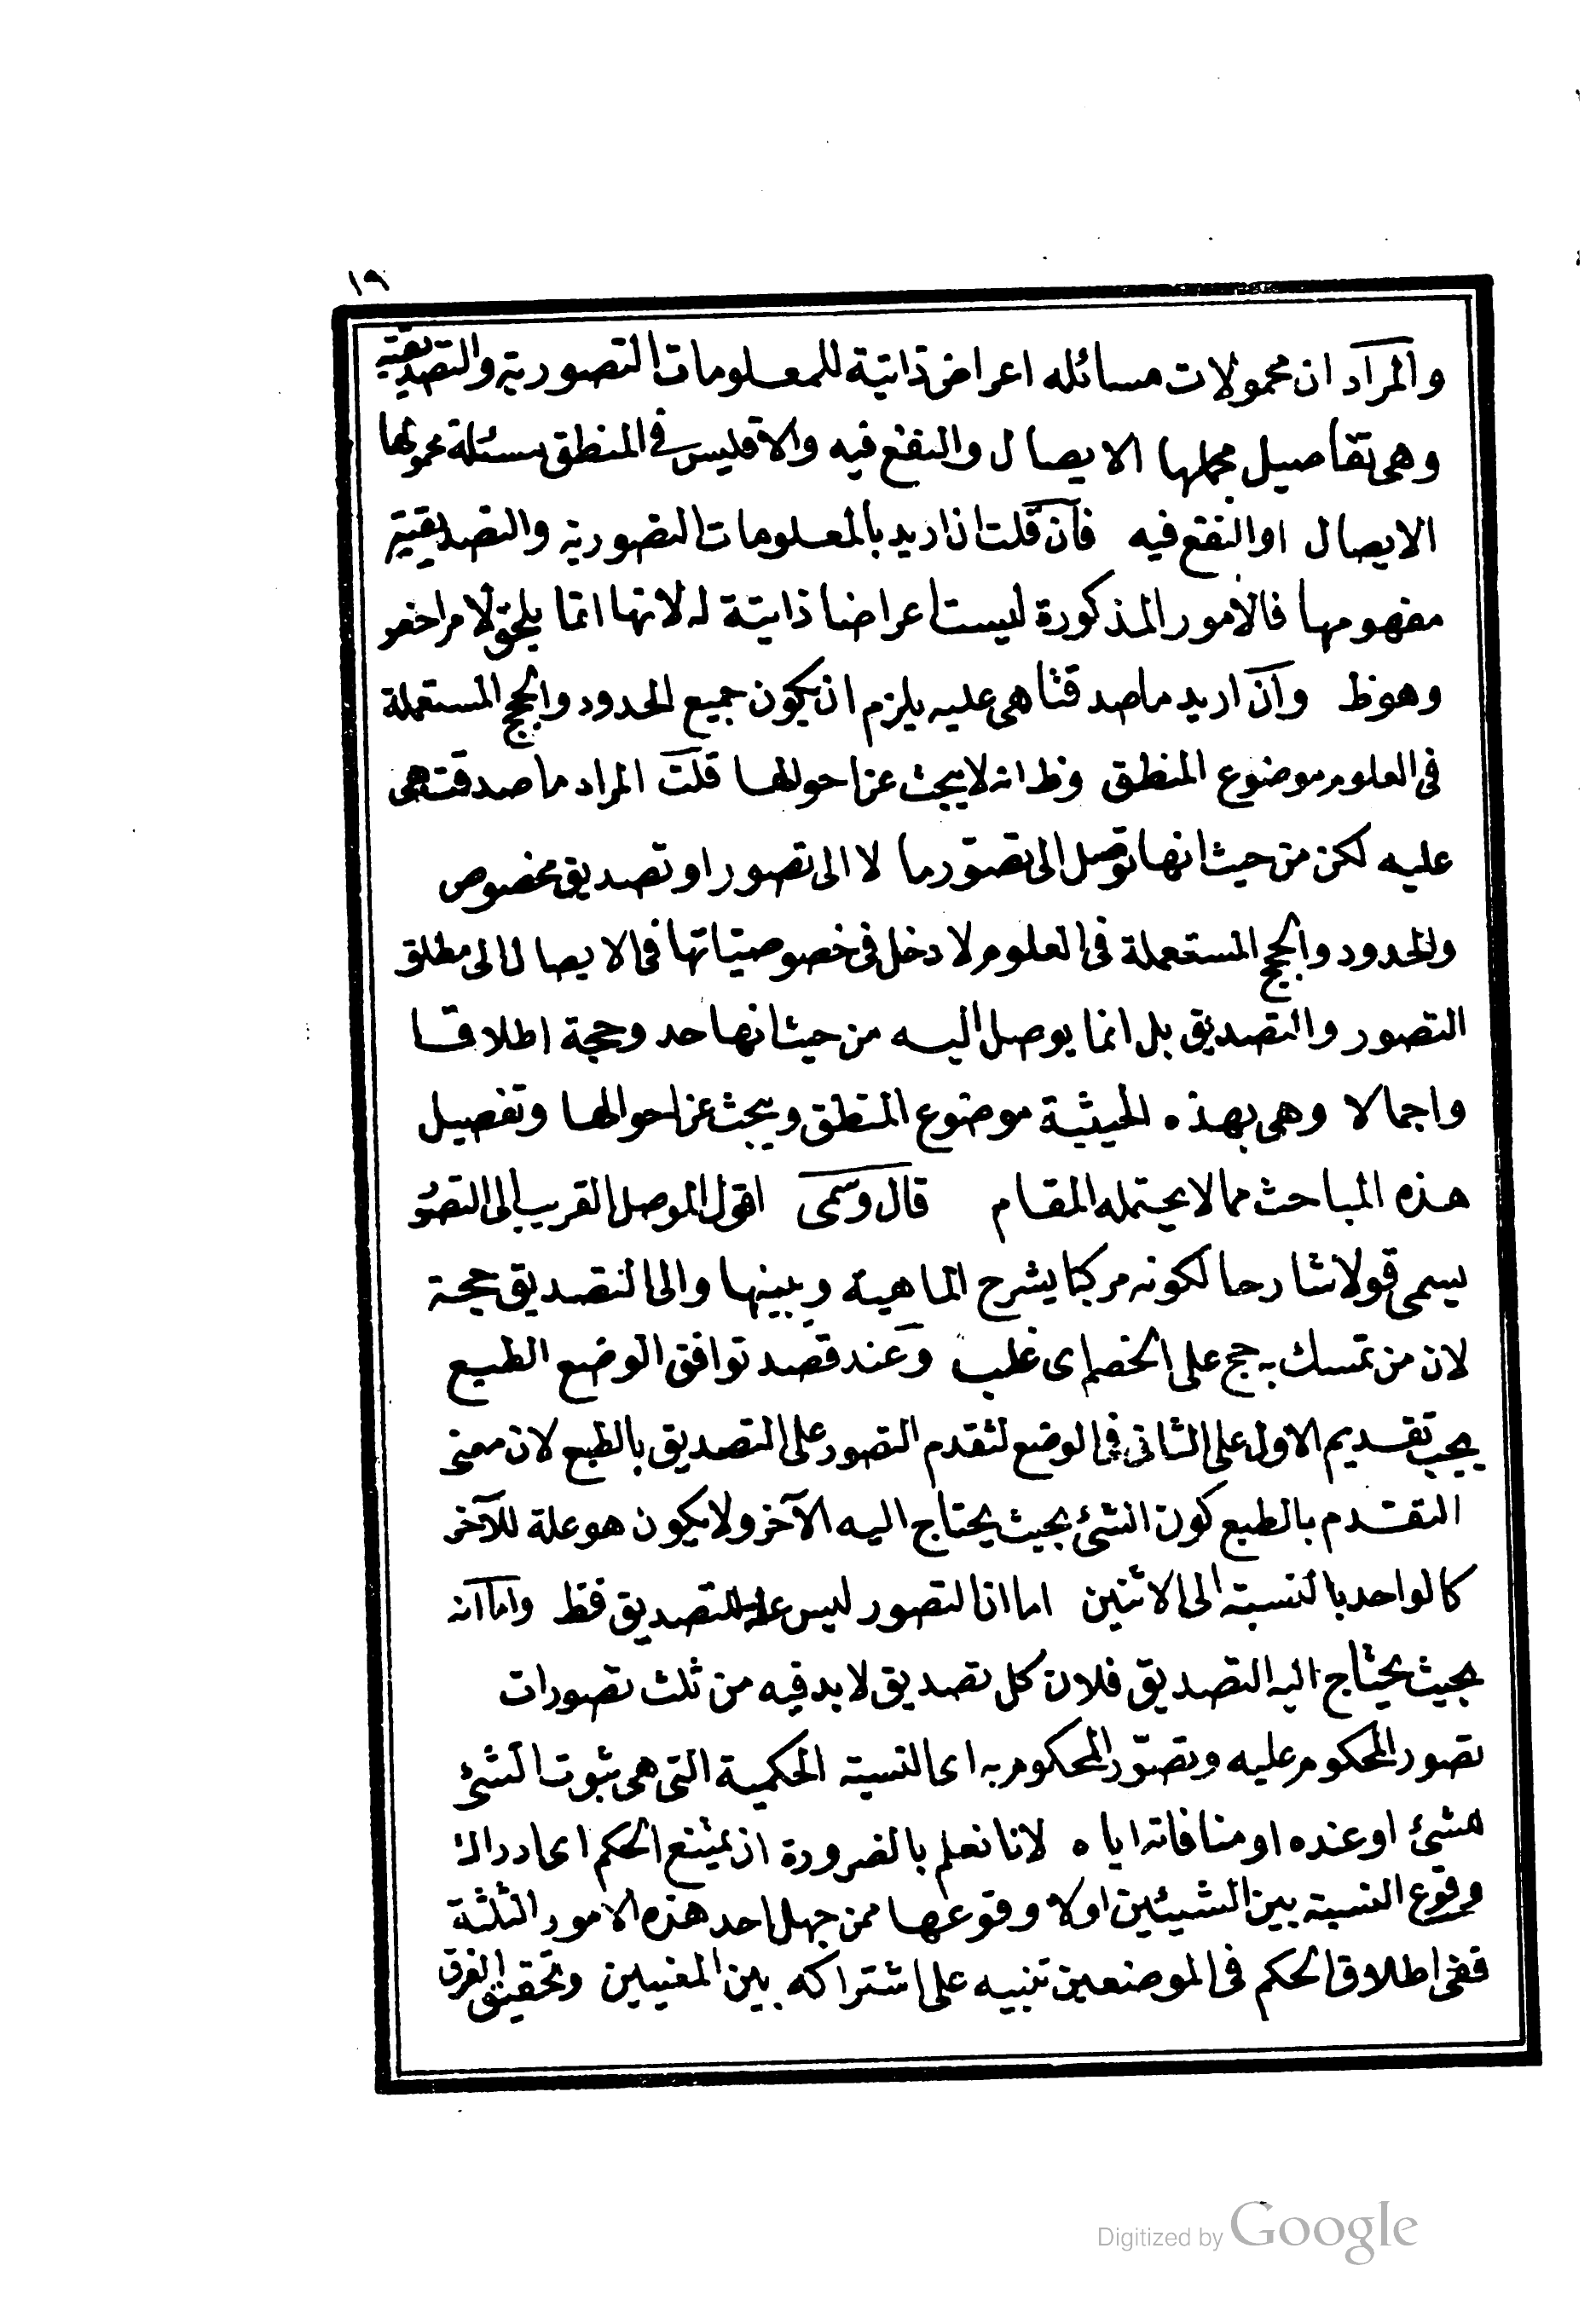 ١٩
والمراد ان محمولات مسائله اعراض ذاتية للمعلومات التصورية والتصديقية
وهى تفاصيل مجملها الايصال والنفع فيه والا فليس فى المنطق مسئلة محمولها
الايصال او النفع فيه فان قلت ان اريد بالمعلومات التصورية والتصديقية
مفهومها فالامور المذكورة ليست اعراضا ذاتية له لانها انما يلحق لامر اخص
وهو ظ وان اريد ما صدقتا هى عليه يلزم ان يكون جميع الحدود والحجج المستعملة
فى العلوم موضوع المنطق وظ انه لا يبحث عن احوالها قلت المراد ما صدقت هى
عليه لكن من حيث انها توصل الى تصور ما لا الى تصور او تصديق مخصوص
والحدود والحجج المستعملة فى العلوم لا دخل فى خصوصياتها فى الايصال الى مطلق
التصور والتصديق بل انما يوصل اليه من حيث انها حد وحجة اطلاقا
واجمالا وهى بهذه الحيثية موضوع المنطق ويبحث عن احوالها وتفصيل
هذه المباحث مما لا يحتمله المقام قال وسمى اقول الموصل القريب الى التصو
يسمى قولا شارحا لكونه مركبا يشرح الماهية ويبينها والى التصديق حجة
لان من تمسك به حج على الخصم اى غلب وعند قصد توافق الوضع الطبع
يجب تقديم الاول على الثانى فى الوضع لتقدم التصور على التصديق بالطبع لان معنى
التقدم بالطبع كون الشئ بحيث يحتاج اليه الآخر ولا يكون هو علة للآخر
كالواحد بالنسبة الى الاثنين اما ان التصور ليس علة للتصديق فظ واما انه
بحيث يحتاج اليه التصديق فلان كل تصديق لا بد فيه من ثلث تصورات
تصور المحكوم عليه وتصور المحكوم به اى النسبة الحكمية التى هى ثبوت الشئ
لشئ او عنده او منافاته اياه لانا نعلم بالضرورة ان يمتنع الحكم اى ادراك
وقوع النسبة بين الشيئين اولا وقوعها ممن جهل احد هذه الامور الثلثة
ففى اطلاق الحكم فى الموضعين تنبيه على اشتراكه بين المعنيين وتحقيق الفرق
Digitized by Google